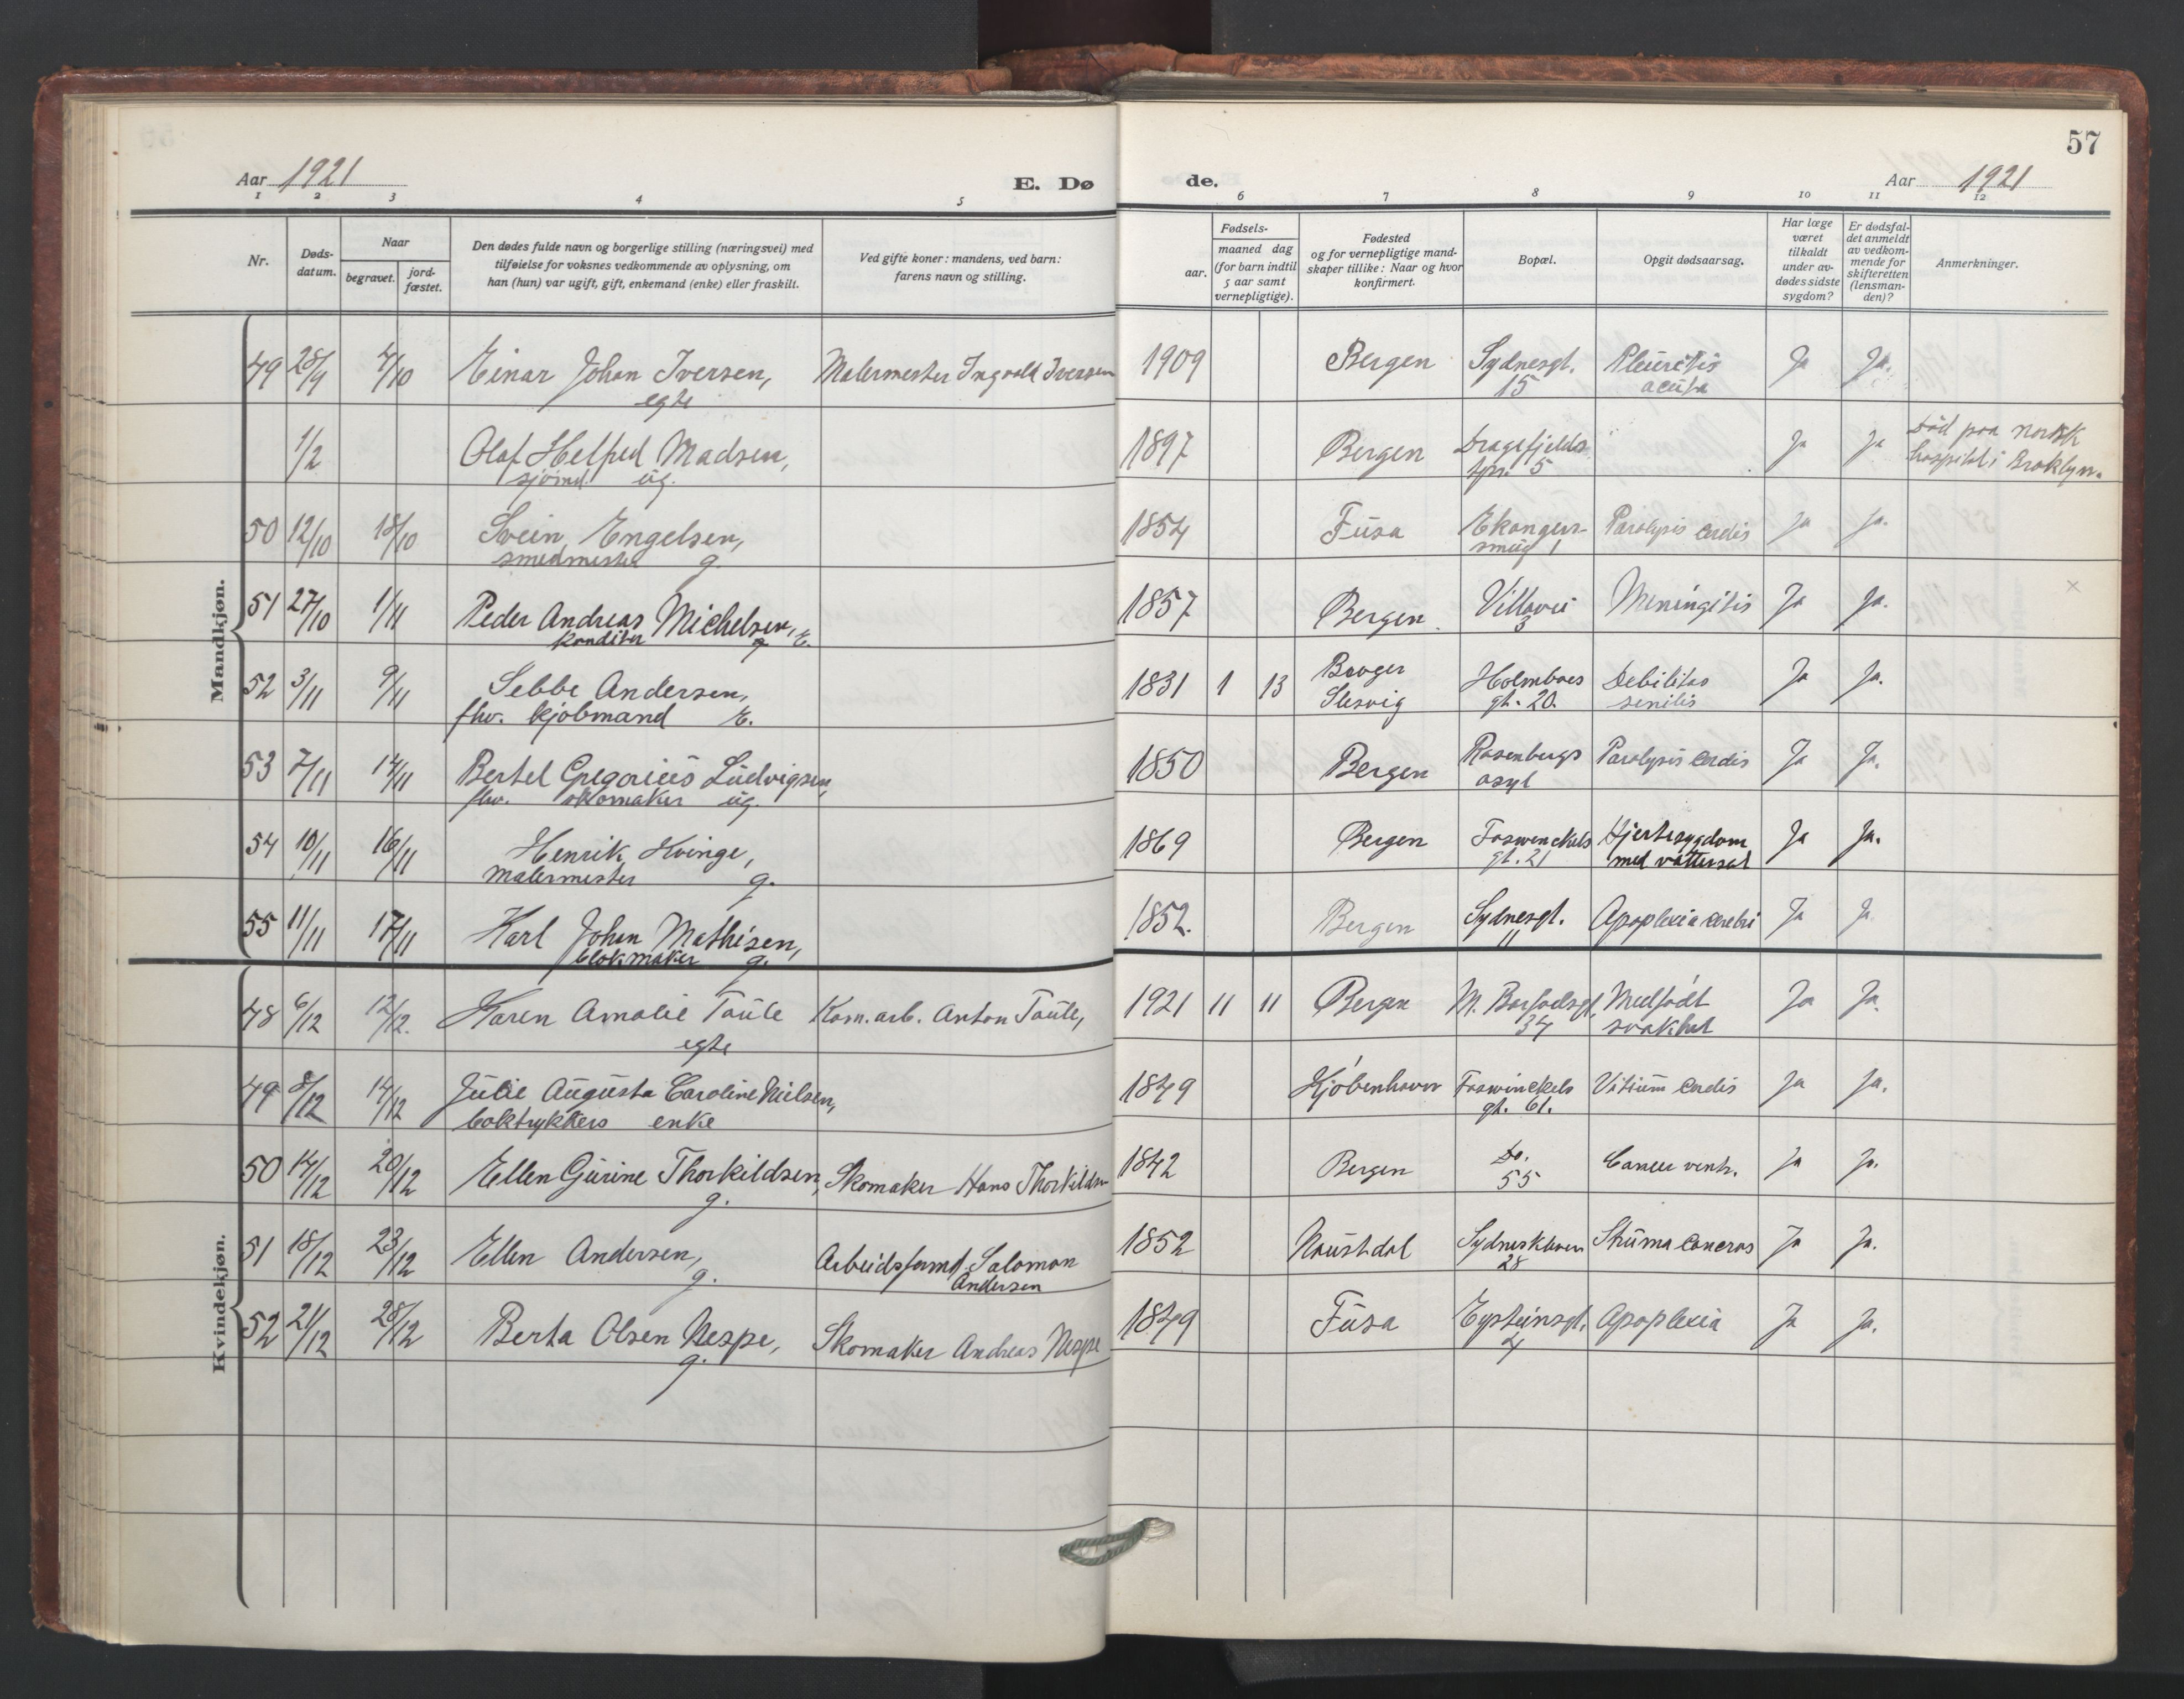 57
Aar 1921 E. Dø de. Aar 1921
1 2 3 4 5 6 7 8 9 10 11 12
Nr. Dødsdatum. Naar begravet. jordfæstet. Den dødes fulde navn og borgerlige stilling (næringsvei) med tilføielse for voksnes vedkommende av oplysning, om han (hun) var ugift, gift, enkemand (enke) eller fraskilt. Ved gifte koner: mandens, ved barn: farens navn og stilling. Fødsels- aar. maaned dag (for barn indtil 5 aar samt vernepligtige). Fødested og for vernepligtige mandskaper tillike: Naar og hvor konfirmert. Bopæl. Opgit dødsaarsag. Har læge været tilkaldt under avdødes sidste sygdom? Er dødsfaldet anmeldt av vedkommende for skifteretten (lensmanden)? Anmerkninger.
Mandkjøn.
49 28/9 4/10 Einar Johan Iversen, Malermester Ingvald Iversen 1909 Bergen Sydnesgt. Pleuritis Ja Ja.
egte 15 acuta
1/2 Olaf Helfred Madsen, 1897 Bergen Dragefjelds Ja Ja Död paa norsk
sjömd. ug. tpr. 5 hospital i Broklyn.
50 12/10 18/10 Svein Engelsen, 1854 Fusa Ekanger- Paralysis cordis Ja Ja.
smedmester g. smug 1
51 27/10 1/11 Peder Andreas Michelsen, 1857 Bergen Villavei Meningitis Ja Ja. ×
konditor E. 3
52 3/11 9/11 Sebbe Andersen, 1831 1 13 Broger Holmboes Debilitas Ja Ja.
fhv. kjøbmand E. Slesvig gt. 20. senilis
53 7/11 14/11 Bertel Gregorius Ludvigsen, 1850 Bergen Rosenbergs Paralysis cordis Ja Ja.
fhv. skomaker ug. asyl
54 10/11 16/11 Henrik Kvinge, 1869 Bergen Foswinckels Hjertesygdom Ja Ja.
Malermester g. gt. 21 med vattersot
55 11/11 17/11 Karl Johan Mathisen, 1852. Bergen Sydnesgt. Apoplexia cerebri Ja Ja
blokmaker g. 11
Kvindekjøn.
48 6/12 12/12. Karen Amalie Taule Kom. arb. Anton Taule, 1921 11 11 Bergen M. Barfodsgt. Medfödt Ja Ja.
egte 34 svakhet
49 8/12 14/12 Julie Augusta Caroline Nielsen, 1849 Kjöbenhavn Foswinckels Vitium cordis Ja Ja.
boktrykkers enke gt. 61.
50 14/12 20/12 Ellen Gurine Thorkildsen, Skomaker Hans Thorkildsen 1842 Bergen Do. Cancer ventr. Ja Ja.
g. 55
51 18/12 23/12 Ellen Andersen, Arbeidsformd. Salomon 1852 Naustdal Sydneskleven Struma cancros Ja Ja.
g. Andersen 28
52 21/12 28/12 Berta Olsen Nespe, Skomaker Andreas Nespe 1849 Fusa Eysteinsgt. Apoplexia Ja Ja.
g. 4